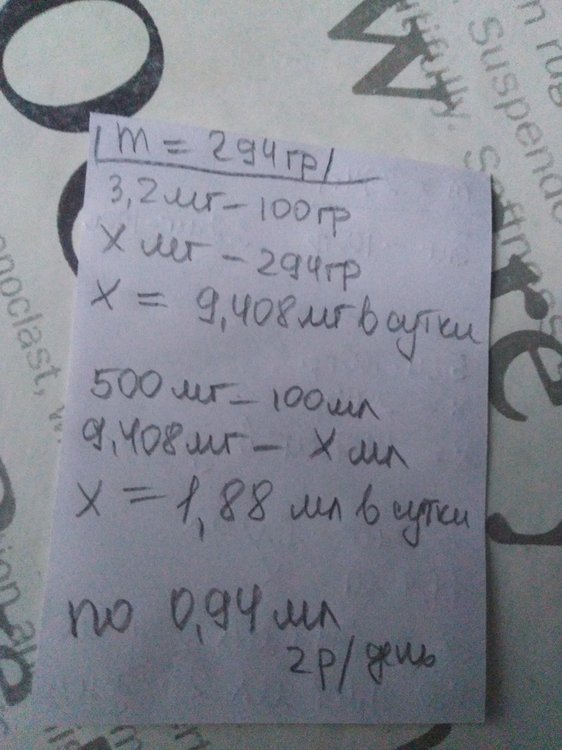 m = 294гр
3,2мг – 100гр
X мг – 294гр
X = 9,408мг в сутки
500мг – 100мл
9,408мг – X мл
X = 1,88 мл в сутки
по 0,94 мл
2р/день
O
W
re
Suspende
onoclast,